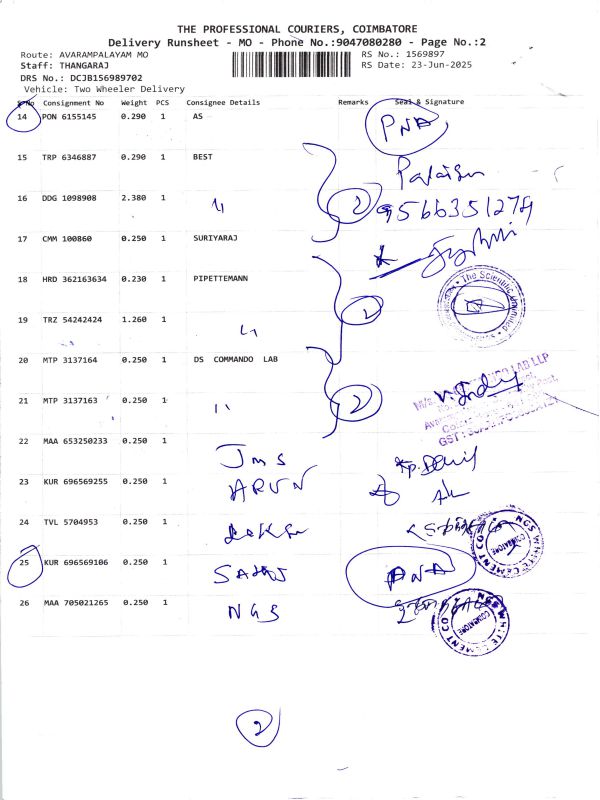 THE PROFESSIONAL COURIERS, COIMBATORE
Delivery Runsheet - MO - Phone No.:9047080280 - Page No.:2
Route: AVARAMPALAYAM MO RS No.: 1569897
Staff: THANGARAJ RS Date: 23-Jun-2025
DRS No.: DCJB156989702
Vehicle: Two Wheeler Delivery
S.No Consignment No Weight PCS Consignee Details Remarks Seal & Signature
14 PON 6155145 0.290 1 AS PNA
15 TRP 6346887 0.290 1 BEST
16 DDG 1098908 2.380 1 " 2 9566351279
17 CMM 100860 0.250 1 SURIYARAJ
18 HRD 362163634 0.230 1 PIPETTEMANN
The Scientific
19 TRZ 54242424 1.260 1 " 2
20 MTP 3137164 0.250 1 DS COMMANDO LAB
LAB LLP
21 MTP 3137163 0.250 1 " 2
GST:
22 MAA 653250233 0.250 1 Jms
23 KUR 696569255 0.250 1 ARUN
24 TVL 5704953 0.250 1
NGS WHITE CEMENT CO COIMBATORE
25 KUR 696569106 0.250 1 PNA
26 MAA 705021265 0.250 1 NGS
NGS WHITE CEMENT CO COIMBATORE
2